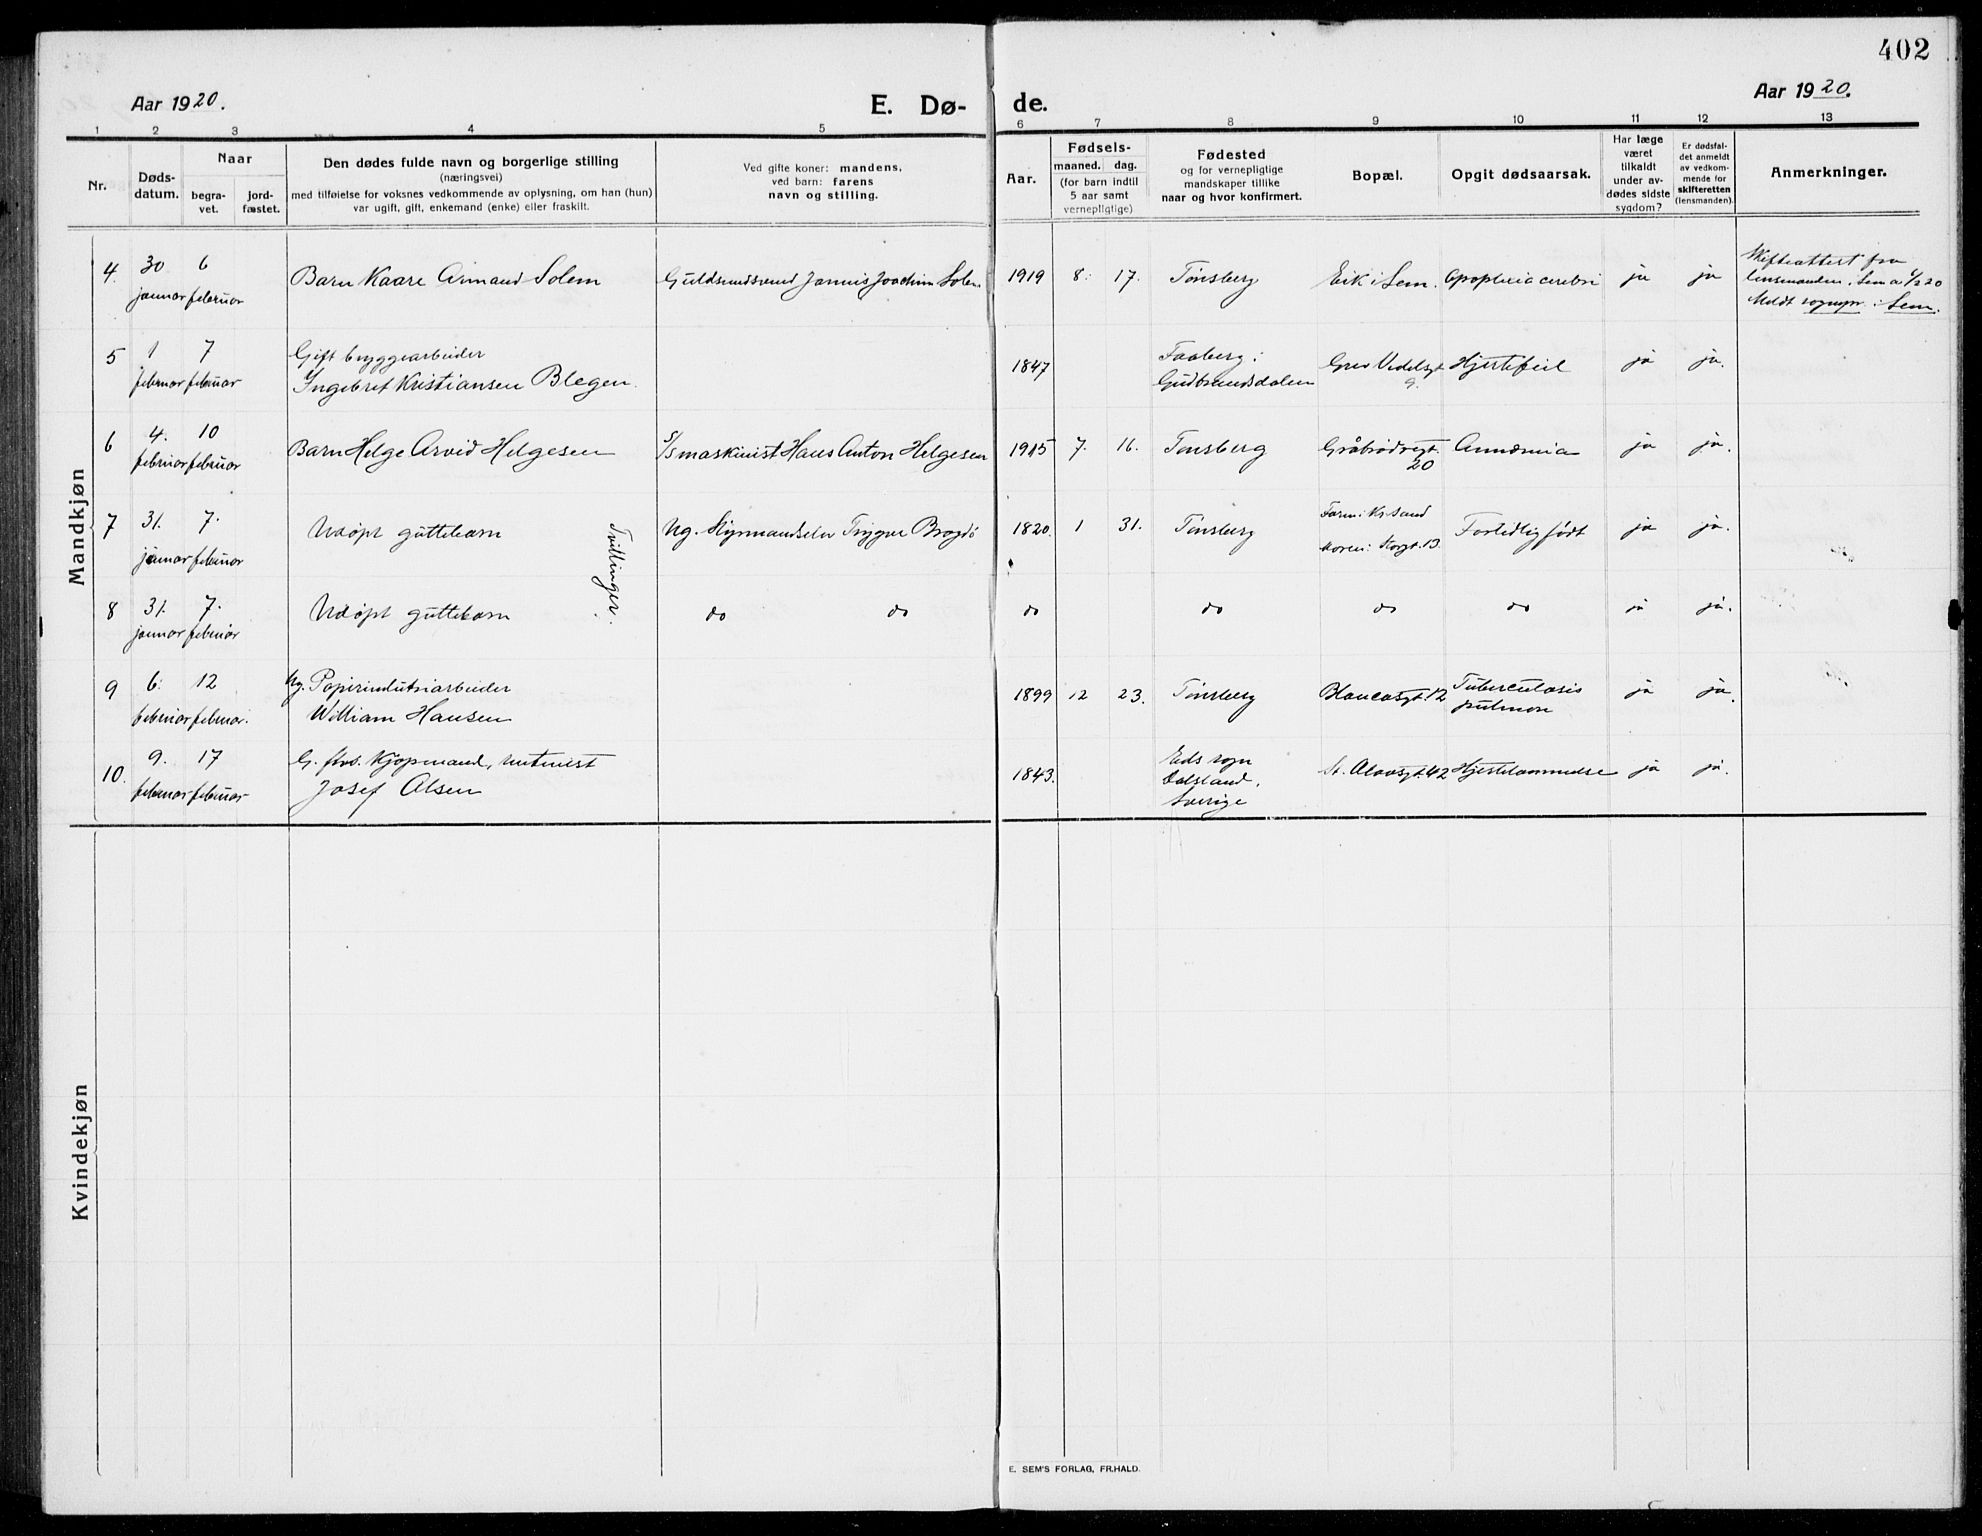 402
Aar 1920.
E. Dø-
de.
Aar 1920.
1 2 3 4 5 6 7 8 9 10 11 12 13
Nr.
Døds-
datum.
Naar
begra-
vet.
jord-
fæstet.
Den dødes fulde navn og borgerlige stilling
(næringsvei)
med tilføielse for voksnes vedkommende av oplysning, om han (hun)
var ugift, gift, enkemand (enke) eller fraskilt.
Ved gifte koner: mandens,
ved barn: farens
navn og stilling.
Aar.
Fødsels-
maaned. dag.
(for barn indtil
5 aar samt
vernepligtige)
Fødested
og for vernepligtige
mandskaper tillike
naar og hvor konfirmert.
Bopæl.
Opgit dødsaarsak.
Har læge
været
tilkaldt
under av-
dødes sidste
sygdom?
Er dødsfal-
det anmeldt
av vedkom-
mende for
skifteretten
(lensmanden).
Anmerkninger.
Mandkjøn
4. 30 januar 6 februar
Barn Kaare Armand Solem
Guldsmedsvend Jannis Joachim Solem
1919 8. 17. Tønsberg
Eik i Sem. Apoplexia cerebri ja ja
Skifteattest fra
lensmanden i Sem a 6/2 20
Meldt sognepr. i Sem.
5 1 februar 7 februar
Gift bryggearbeider
Ingebret Kristiansen Blegen.
1847
Faaberg i
Gudbrandsdalen
Grev Wedelsgt
9.
Hjertefeil ja ja.
6 4. februar 10 februar
Barn Helge Arvid Helgesen
S/S maskinist Hans Anton Helgesen
1915 7. 16. Tønsberg
Gråbrødregt.
20
Annæmia ja ja.
7 31. januar 7. februar
Udøpt guttebarn
Tvillinger.
Ug. Styrmandselev Trygve Brogdø
1820. 1 31. Tønsberg
Faren: Kr.sand
Moren: Storgt. 13
Fortidlig født ja ja.
8 31. januar 7. februar
Udøpt guttebarn
do do do do do do ja ja.
9 6. februar 12 februar.
Ug. Papirindustriarbeider
William Hansen
1899 12 23. Tønsberg
Blancasgt. 12
Tuberculosis
pulmon ja ja.
10. 9. februar 17 februar
G. fhv. Kjøpmand,
Josef Olsen
1843.
Eds sogn
Dalsland.
Sverige
St. Olavsgt. 42 Hjertelammelse ja ja.
Kvindekjøn
E. SEM'S FORLAG, FR.HALD.